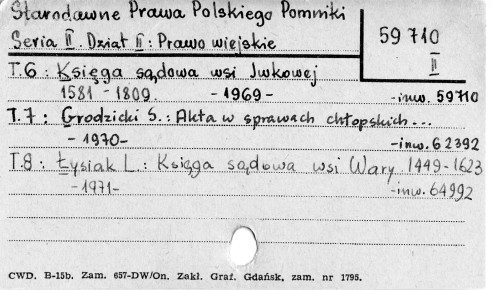 Starodawne Prawa Polskiego Pomniki
Seria II. Dział II: Prawo wiejskie
59 710
II
T.6: Księga sądowa wsi Iwkowej
1581 - 1809. - 1969 - -inw. 59710
T.7: Grodzicki S.: Akta w sprawach chłopskich...
- 1970 - -inw. 62392
T.8: Łysiak L.: Księga sądowa wsi Wary 1449-1623
- 1971 - -inw. 64992
CWD. B-15b. Zam. 657-DW/On. Zakł. Graf. Gdańsk, zam. nr 1795.